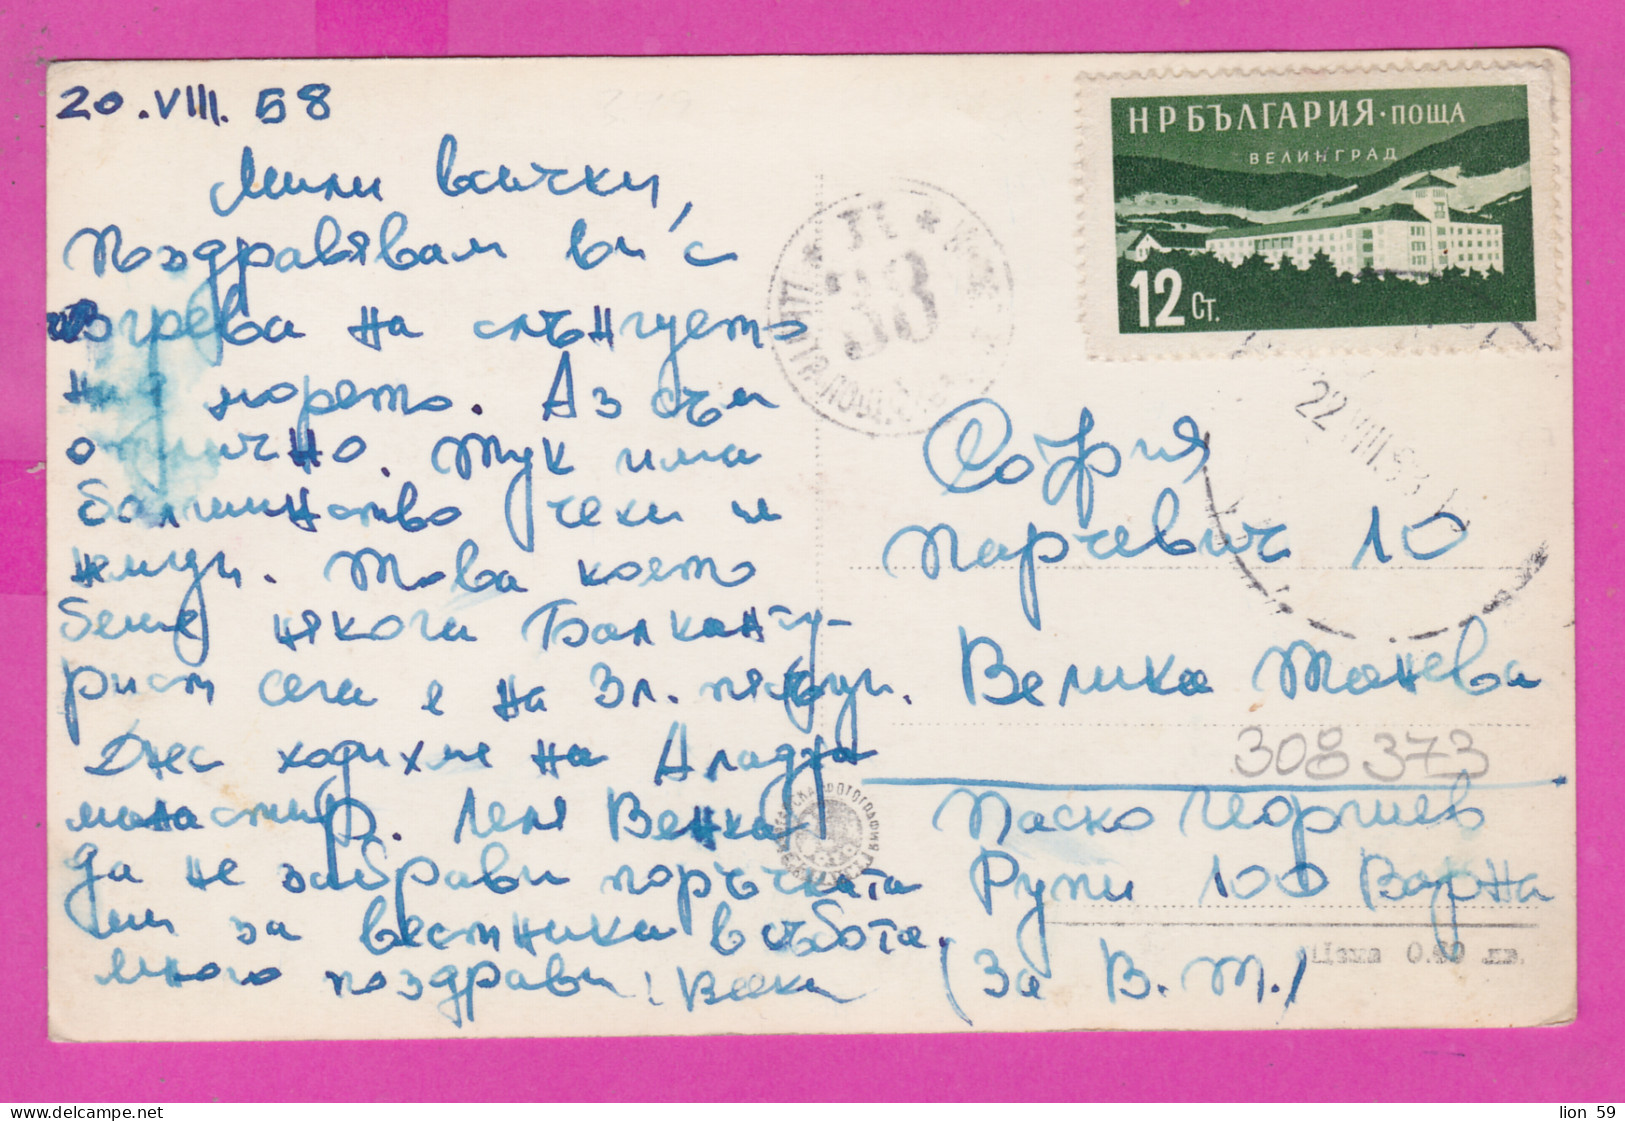 20.VIII.58
Мили всички,
Поздравявам ви с
изгрева на слънцето
над морето. Аз съм
отлично. Тук има
болшинство чехи и
немци. Това което
беше някога Балканту-
рист сега е на Зл. пясъци.
Днес ходихме на Аладжа
манастир. Леля Венка
да не забрави поръчката
ми за вестника в събота.
Много поздрави! Веска
НРБЪЛГАРИЯ·ПОЩА
ВЕЛИНГРАД
12 Ст.
38
22.VIII.58
София
Парчевич 10
Велика Тонева
308373
Паско Георгиев
Рупи 100 Варна
Цена 0.60 лв.
(За В. Т.)
lion 59